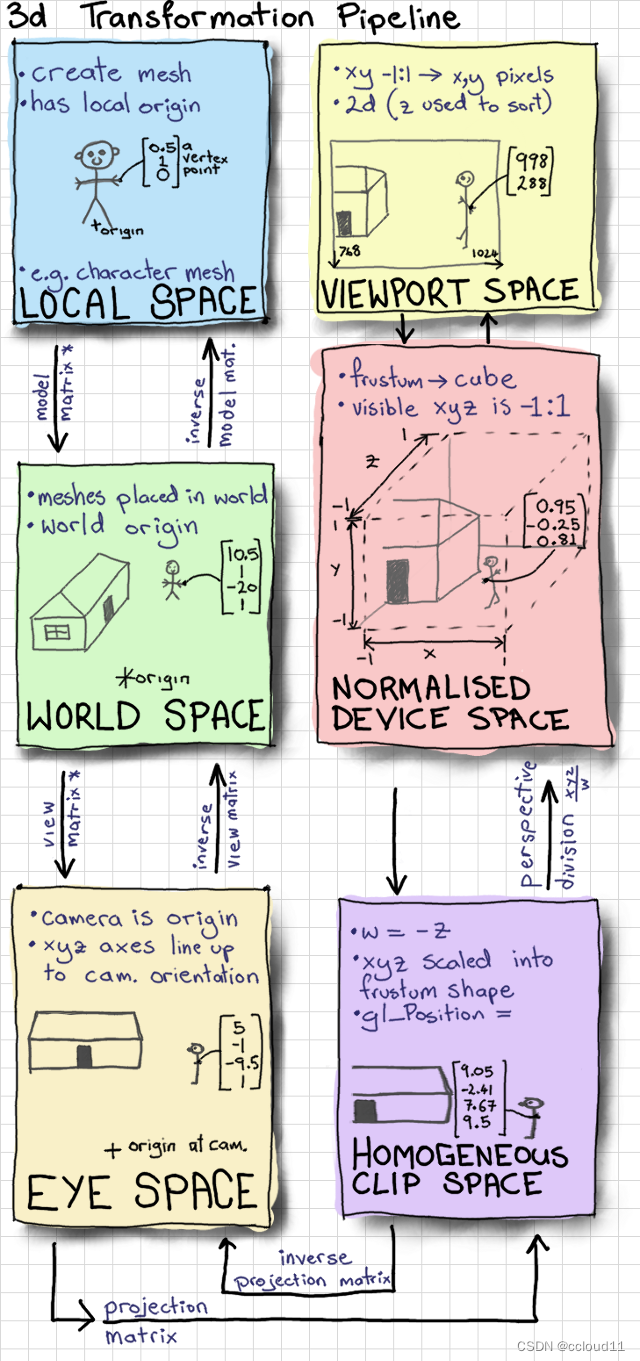 3d Transformation Pipeline
• create mesh
• has local origin
[0.5
1
0]
a
vertex
point
+origin
• e.g. character mesh
LOCAL SPACE
model
matrix *
inverse
model mat.
• meshes placed in world
• world origin
[10.5
1
-20
1]
*origin
WORLD SPACE
view
matrix *
inverse
view matrix
• camera is origin
• xyz axes line up
to cam. orientation
[5
-1
-9.5
1]
+ origin at cam.
EYE SPACE
projection
matrix
inverse
projection matrix
• w = -z
• xyz scaled into
frustum shape
• gl_Position =
[9.05
-2.41
7.67
9.5]
HOMOGENEOUS
CLIP SPACE
perspective
division xyz/w
• frustum → cube
• visible xyz is -1:1
1
z
-1
1
y
-1
-1
x
[0.95
-0.25
0.81]
NORMALISED
DEVICE SPACE
• xy -1:1 → x,y pixels
• 2d (z used to sort)
[998
288]
768
1024
VIEWPORT SPACE
CSDN @ccloud11